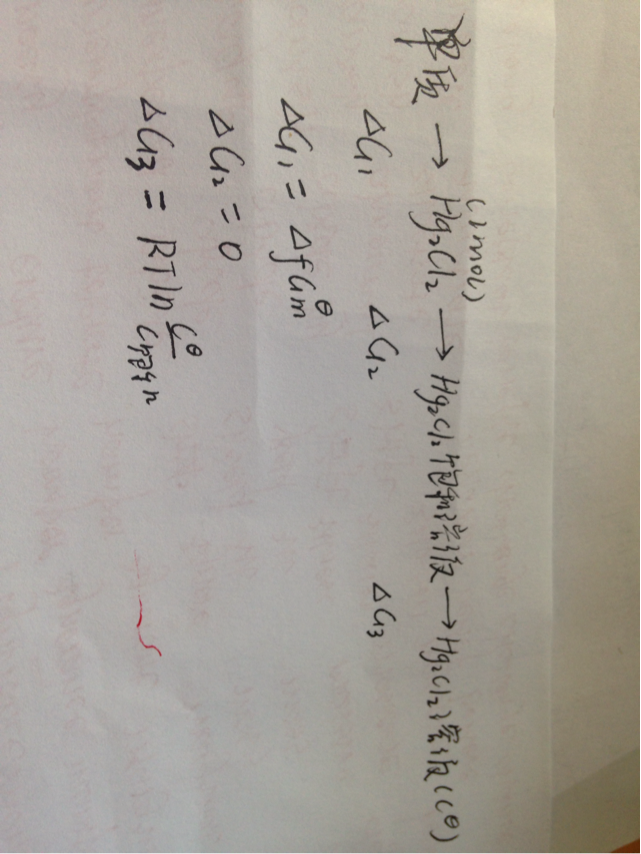 单质 → Hg₂Cl₂ → Hg₂Cl₂饱和溶液 → Hg₂Cl₂溶液(C^θ)
(1mol)
ΔG₁ ΔG₂ ΔG₃
ΔG₁ = ΔfGm^θ
ΔG₂ = 0
ΔG₃ = RTln C^θ/C饱和